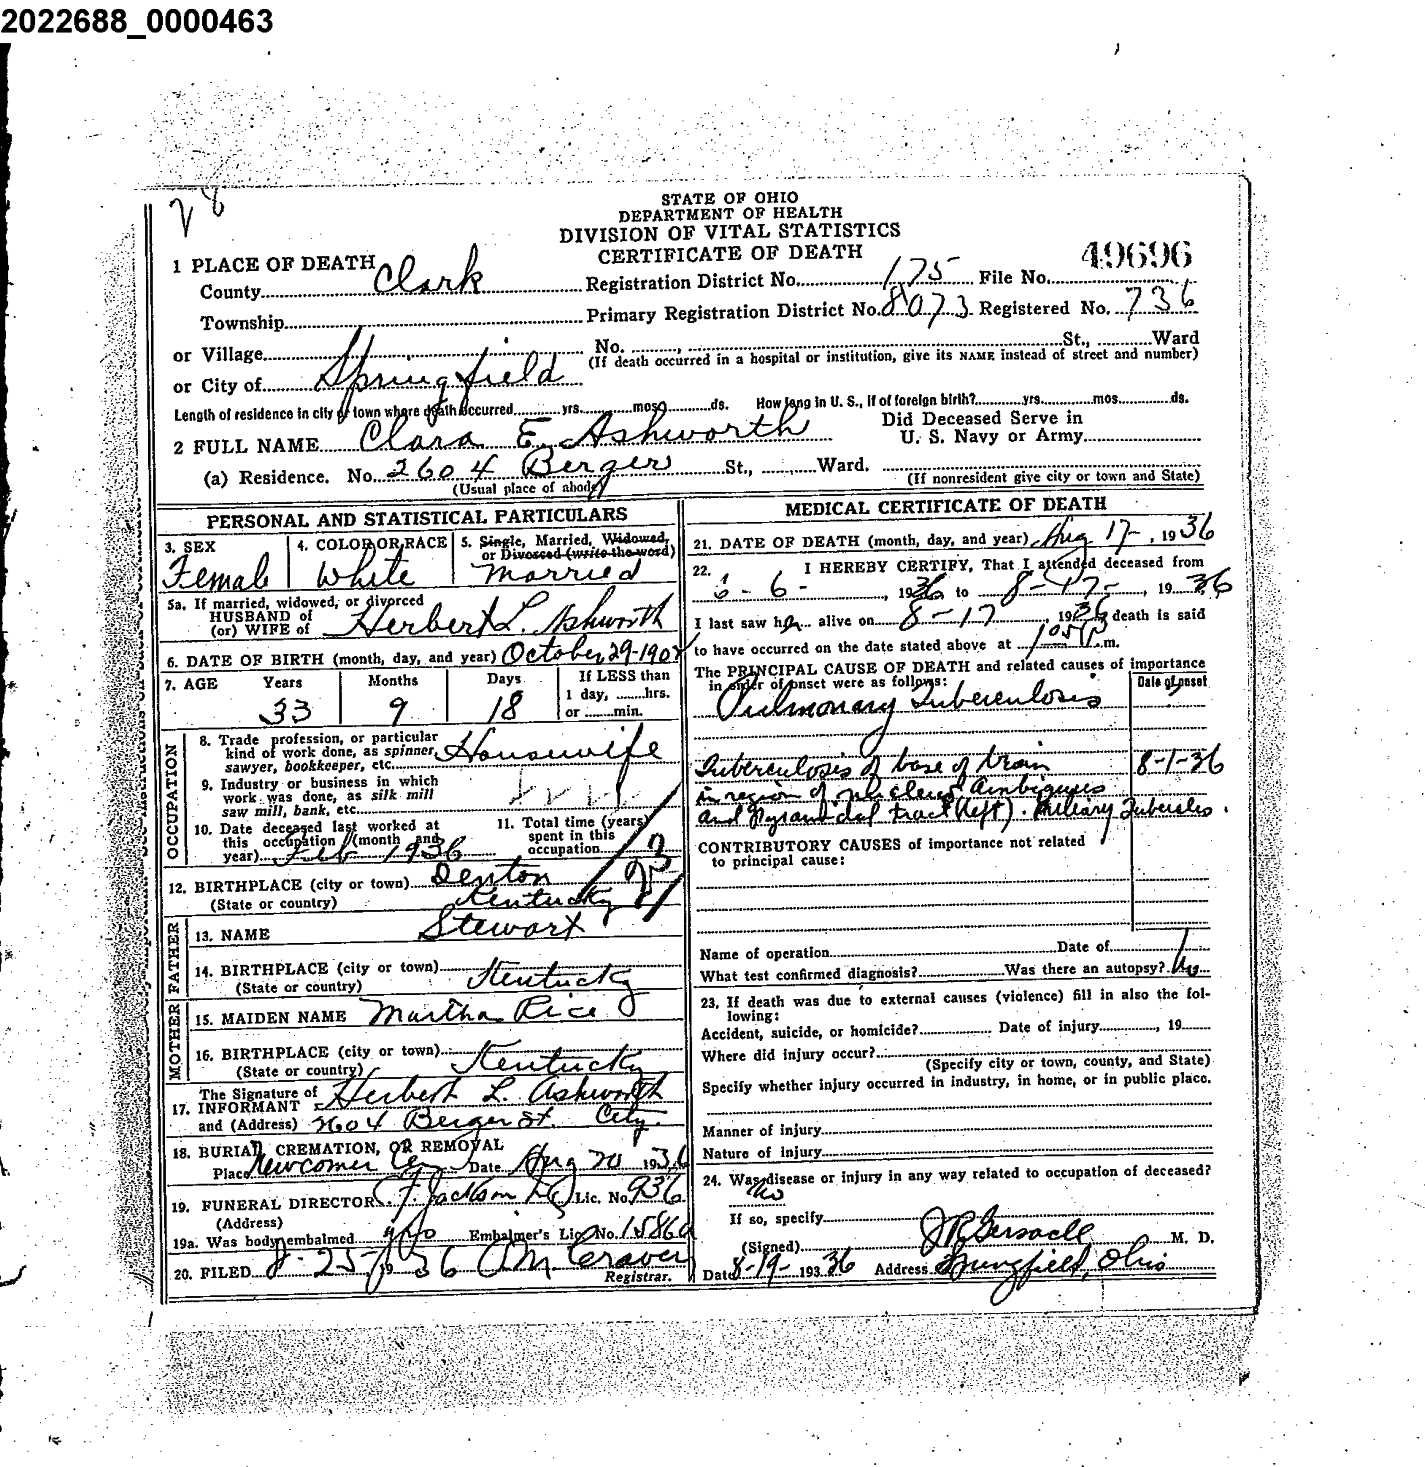 2022688_0000463
28
STATE OF OHIO
DEPARTMENT OF HEALTH
DIVISION OF VITAL STATISTICS
CERTIFICATE OF DEATH
49696
1 PLACE OF DEATH
County Clark Registration District No. 175 File No.
Township Primary Registration District No. 8073 Registered No. 736
or Village No. St., Ward
(If death occurred in a hospital or institution, give its NAME instead of street and number)
or City of Springfield
Length of residence in city or town where death occurred yrs. mos. ds. How long in U. S., if of foreign birth? yrs. mos. ds.
2 FULL NAME Clara E. Ashworth Did Deceased Serve in U. S. Navy or Army
(a) Residence. No. 2604 Berger St., Ward.
(Usual place of abode) (If nonresident give city or town and State)
PERSONAL AND STATISTICAL PARTICULARS
3. SEX Female
4. COLOR OR RACE White
5. Single, Married, Widowed, or Divorced (write the word) Married
5a. If married, widowed, or divorced
HUSBAND of
(or) WIFE of Herbert L. Ashworth
6. DATE OF BIRTH (month, day, and year) October 29-1902
7. AGE Years Months Days If LESS than
1 day, hrs.
or min.
33 9 18
OCCUPATION
8. Trade, profession, or particular
kind of work done, as spinner,
sawyer, bookkeeper, etc. Housewife
9. Industry or business in which
work was done, as silk mill
saw mill, bank, etc.
10. Date deceased last worked at
this occupation (month and
year) Feb 1936
11. Total time (years)
spent in this
occupation
12. BIRTHPLACE (city or town) Denton
(State or country) Kentucky
FATHER
13. NAME Stewart
14. BIRTHPLACE (city or town)
(State or country) Kentucky
MOTHER
15. MAIDEN NAME Martha Rice
16. BIRTHPLACE (city or town)
(State or country) Kentucky
17. The Signature of INFORMANT Herbert L. Ashworth
and (Address) 2604 Berger St. City.
18. BURIAL, CREMATION, OR REMOVAL
Place Newcomer Cem Date Aug 20 1936
19. FUNERAL DIRECTOR Jackson Lic. No. 936
(Address)
19a. Was body embalmed Embalmer's Lic. No. 1586a
20. FILED 8-25-1936 Craver
Registrar.
MEDICAL CERTIFICATE OF DEATH
21. DATE OF DEATH (month, day, and year) Aug 17-, 1936
22. I HEREBY CERTIFY, That I attended deceased from
6-6-, 1936 to 8-17-, 1936
I last saw her alive on 8-17, 1936 death is said
to have occurred on the date stated above at P.m.
The PRINCIPAL CAUSE OF DEATH and related causes of importance
in order of onset were as follows: Date of onset
Pulmonary Tuberculosis
Tuberculosis of base of brain 8-1-36
in region of nucleus Ambiguus
and Pyramidal tract (left). Miliary Tubercles.
CONTRIBUTORY CAUSES of importance not related
to principal cause:
Name of operation Date of
What test confirmed diagnosis? Was there an autopsy? No
23. If death was due to external causes (violence) fill in also the fol-
lowing:
Accident, suicide, or homicide? Date of injury , 19
Where did injury occur?
(Specify city or town, county, and State)
Specify whether injury occurred in industry, in home, or in public place.
Manner of injury
Nature of injury
24. Was disease or injury in any way related to occupation of deceased?
No
If so, specify
(Signed) M. D.
Date 8-19-1936 Address Springfield, Ohio